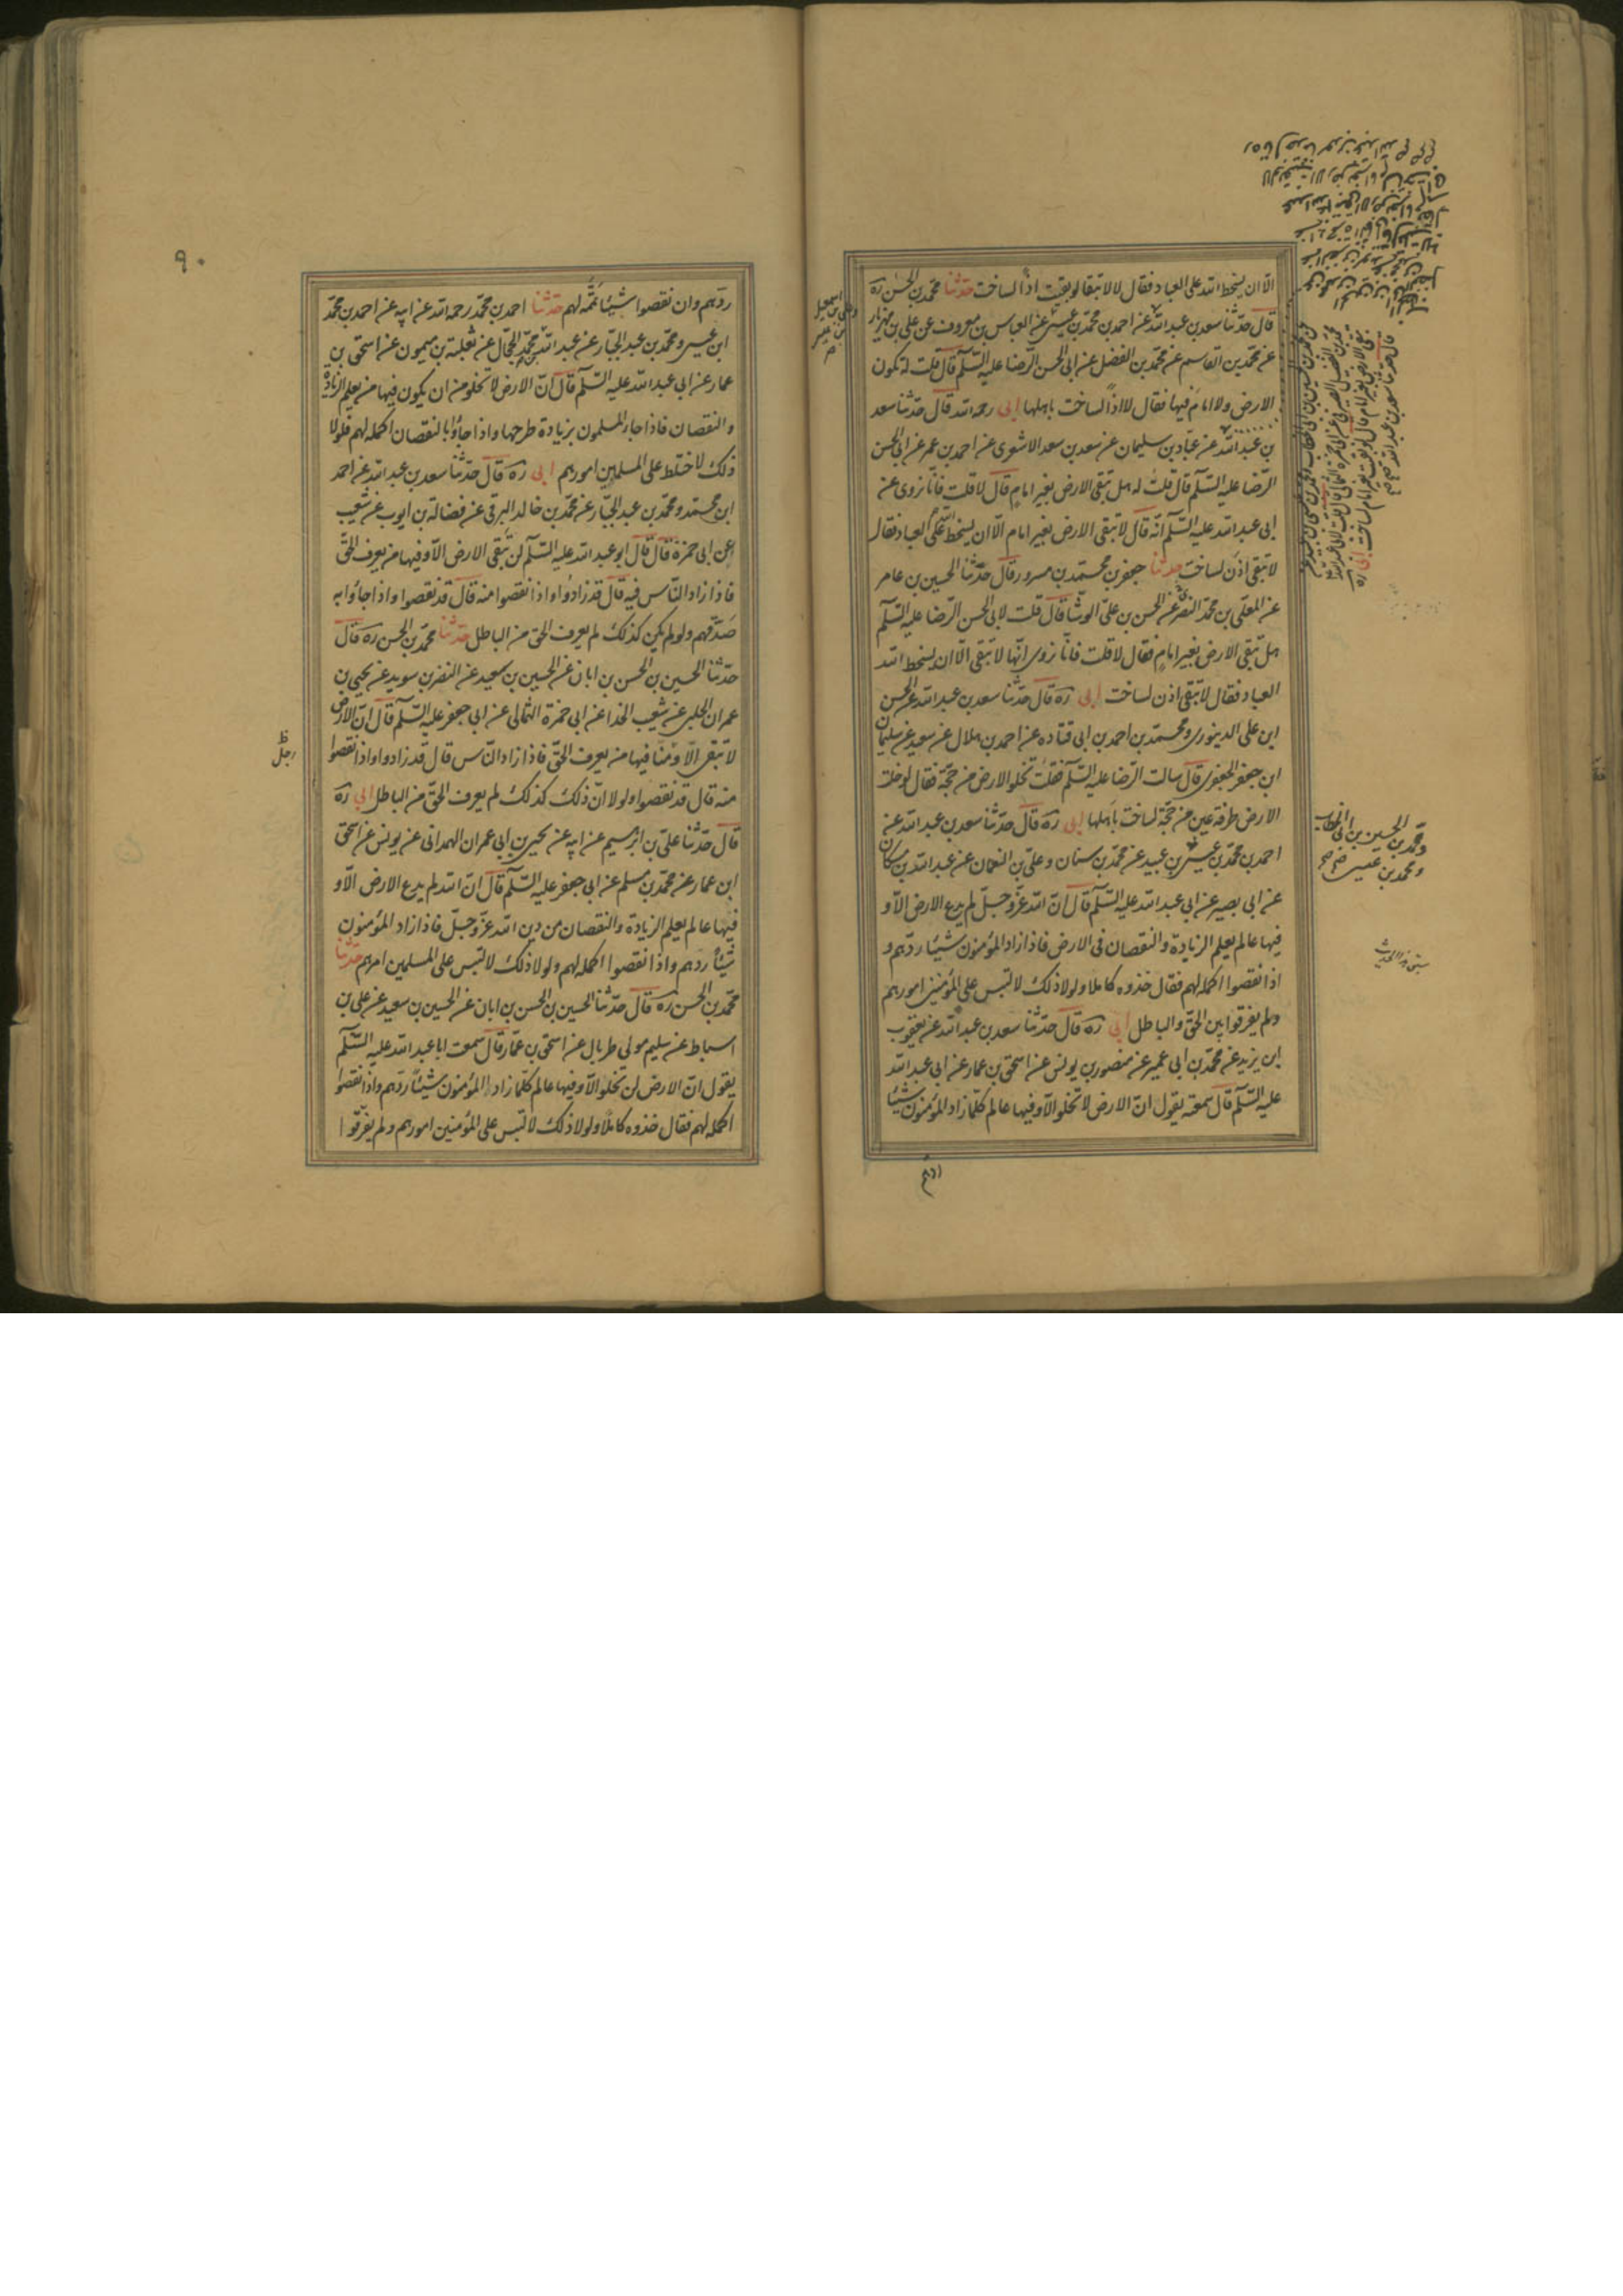 الّا ان يسخط الله على العباد فقال لا لا تبقا لو بقيت اذًا لساخت حدثنا محمد بن الحسن ره
قال حدّثنا سعد بن عبد الله عن احمد بن محمد بن عيسى عن العباس بن معروف عن علي بن مهزيار
عن محمد بن القاسم عن محمد بن الفضل عن ابي الحسن الرّضا عليه السّلم قال قلت له تكون
الارض ولا امام فيها فقال لا اذًا لساخت باهلها ابي رحمه الله قال حدّثنا سعد
بن عبد الله عن عبّاد بن سليمان عن سعد بن سعد الاشعرى عن احمد بن عمر عن ابي الحسن
الرّضا عليه السّلم قال قلت له هل تبقى الارض بغير امام قال لا قلت فانّا نروى عن
ابى عبد الله عليه السّلم انّه قال لا تبقى الارض بغير امام الّا ان يسخط الله على العباد فقال
لا تبقى اذن لساخت حدثنا جعفر بن محمّد بن مسرور قال حدّثنا الحسين بن عامر
عن المعلّى بن محمد البصرى عن الحسن بن علىّ الوشّا قال قلت لابى الحسن الرّضا عليه السّلم
هل تبقى الارض بغير امام فقال لا قلت فانّا نروى انّها لا تبقى الّا ان يسخط الله
العباد فقال لا تبقى اذن لساخت ابى ره قال حدّثنا سعد بن عبد الله عن الحسن
ابن على الدينورى ومحمّد بن احمد بن ابى قتاده عن احمد بن هلال عن سعيد عن سليمان
ابن جعفر الجعفرى قال سالت الرّضا عليه السّلم فقلت تخلو الارض من حجّة فقال لو خلت
الارض طرفة عين من حجّة لساخت باهلها ابى ره قال حدّثنا سعد بن عبد الله عن
احمد بن محمّد بن عيسى بن عبيد عن محمّد بن سنان وعلىّ بن النعمان عن عبد الله بن مسكان
عن ابى بصير عن ابى عبد الله عليه السّلم قال انّ الله عزّ وجلّ لم يدع الارض الّا و
فيها عالم يعلم الزيادة والنقصان فى الارض فاذا زاد المؤمنون شيئا ردّهم و
اذا نقصوا اكمله لهم فقال خذوه كاملا ولولا ذلك لالتبس على المؤمنين امورهم
ولم يفرقوا بين الحقّ والباطل ابى ره قال حدّثنا سعد بن عبد الله عن يعقوب
ابن يزيد عن محمّد بن ابى عمير عن منصور بن يونس عن اسحق بن عمار عن ابى عبد الله
عليه السّلم قال سمعته يقول انّ الارض لا تخلو الّا وفيها عالم كلّما زاد المؤمنون شيئا
ومحمد بن الحسين بن ابى الخطاب
ومحمد بن عيسى
٩٠
ردّهم وان نقصوا شيئًا تمّه لهم حدثنا احمد بن محمّد رحمه الله عن ابيه عن احمد بن محمّد
ابن عيسى ومحمّد بن عبد الجبّار عن عبد الله بن محمّد الحجّال عن ثعلبة بن ميمون عن اسحق بن
عمار عن ابى عبد الله عليه السّلم قال انّ الارض لا تخلو من ان يكون فيها من يعلم الزيادة
والنقصان فاذا جاء المسلمون بزيادة طرحها واذا جاؤا بالنقصان اكمله لهم فلولا
ذلك لاختلط على المسلمين امورهم ابى ره قال حدّثنا سعد بن عبد الله عن احمد
ابن محمّد ومحمّد بن عبد الجبّار عن محمّد بن خالد البرقى عن فضالة بن ايوب عن شعيب
عن ابى حمزة قال قال ابو عبد الله عليه السّلم لن تبقى الارض الّا وفيها من يعرف الحقّ
فاذا زاد النّاس فيه قال قد زادوا واذا نقصوا منه قال قد نقصوا واذا جاؤا به
صدّقهم ولو لم يكن كذلك لم يعرف الحقّ من الباطل حدثنا محمّد بن الحسن ره قال
حدّثنا الحسين بن الحسن بن ابان عن الحسين بن سعيد عن النضر بن سويد عن يحيى بن
عمران الحلبى عن شعيب الحذا عن ابى حمزة الثمالى عن ابى جعفر عليه السّلم قال انّ الارض
لا تبقى الّا ومنّا فيها من يعرف الحقّ فاذا زاد النّاس قال قد زادوا واذا نقصوا
منه قال قد نقصوا ولولا انّ ذلك كذلك لم يعرف الحقّ من الباطل ابى ره
قال حدّثنا علىّ بن ابرهيم عن ابيه عن يحيى بن ابى عمران الهمدانى عن يونس عن اسحق
ابن عمار عن محمّد بن مسلم عن ابى جعفر عليه السّلم قال انّ الله لم يدع الارض الّا و
فيها عالم يعلم الزيادة والنقصان من دين الله عزّ وجلّ فاذا زاد المؤمنون
شيئًا ردّهم واذا نقصوا اكمله لهم ولولا ذلك لالتبس على المسلمين امرهم حدثنا
محمّد بن الحسن ره قال حدّثنا الحسين بن الحسن بن ابان عن الحسين بن سعيد عن على بن
اسباط عن سليم مولى طربال عن اسحق بن عمّار قال سمعت ابا عبد الله عليه السّلم
يقول انّ الارض لن تخلو الّا وفيها عالم كلّما زاد المؤمنون شيئًا ردّهم واذا نقصوا
اكمله لهم فقال خذوه كاملًا ولولا ذلك لالتبس على المؤمنين امورهم ولم يفرّقوا
رجل